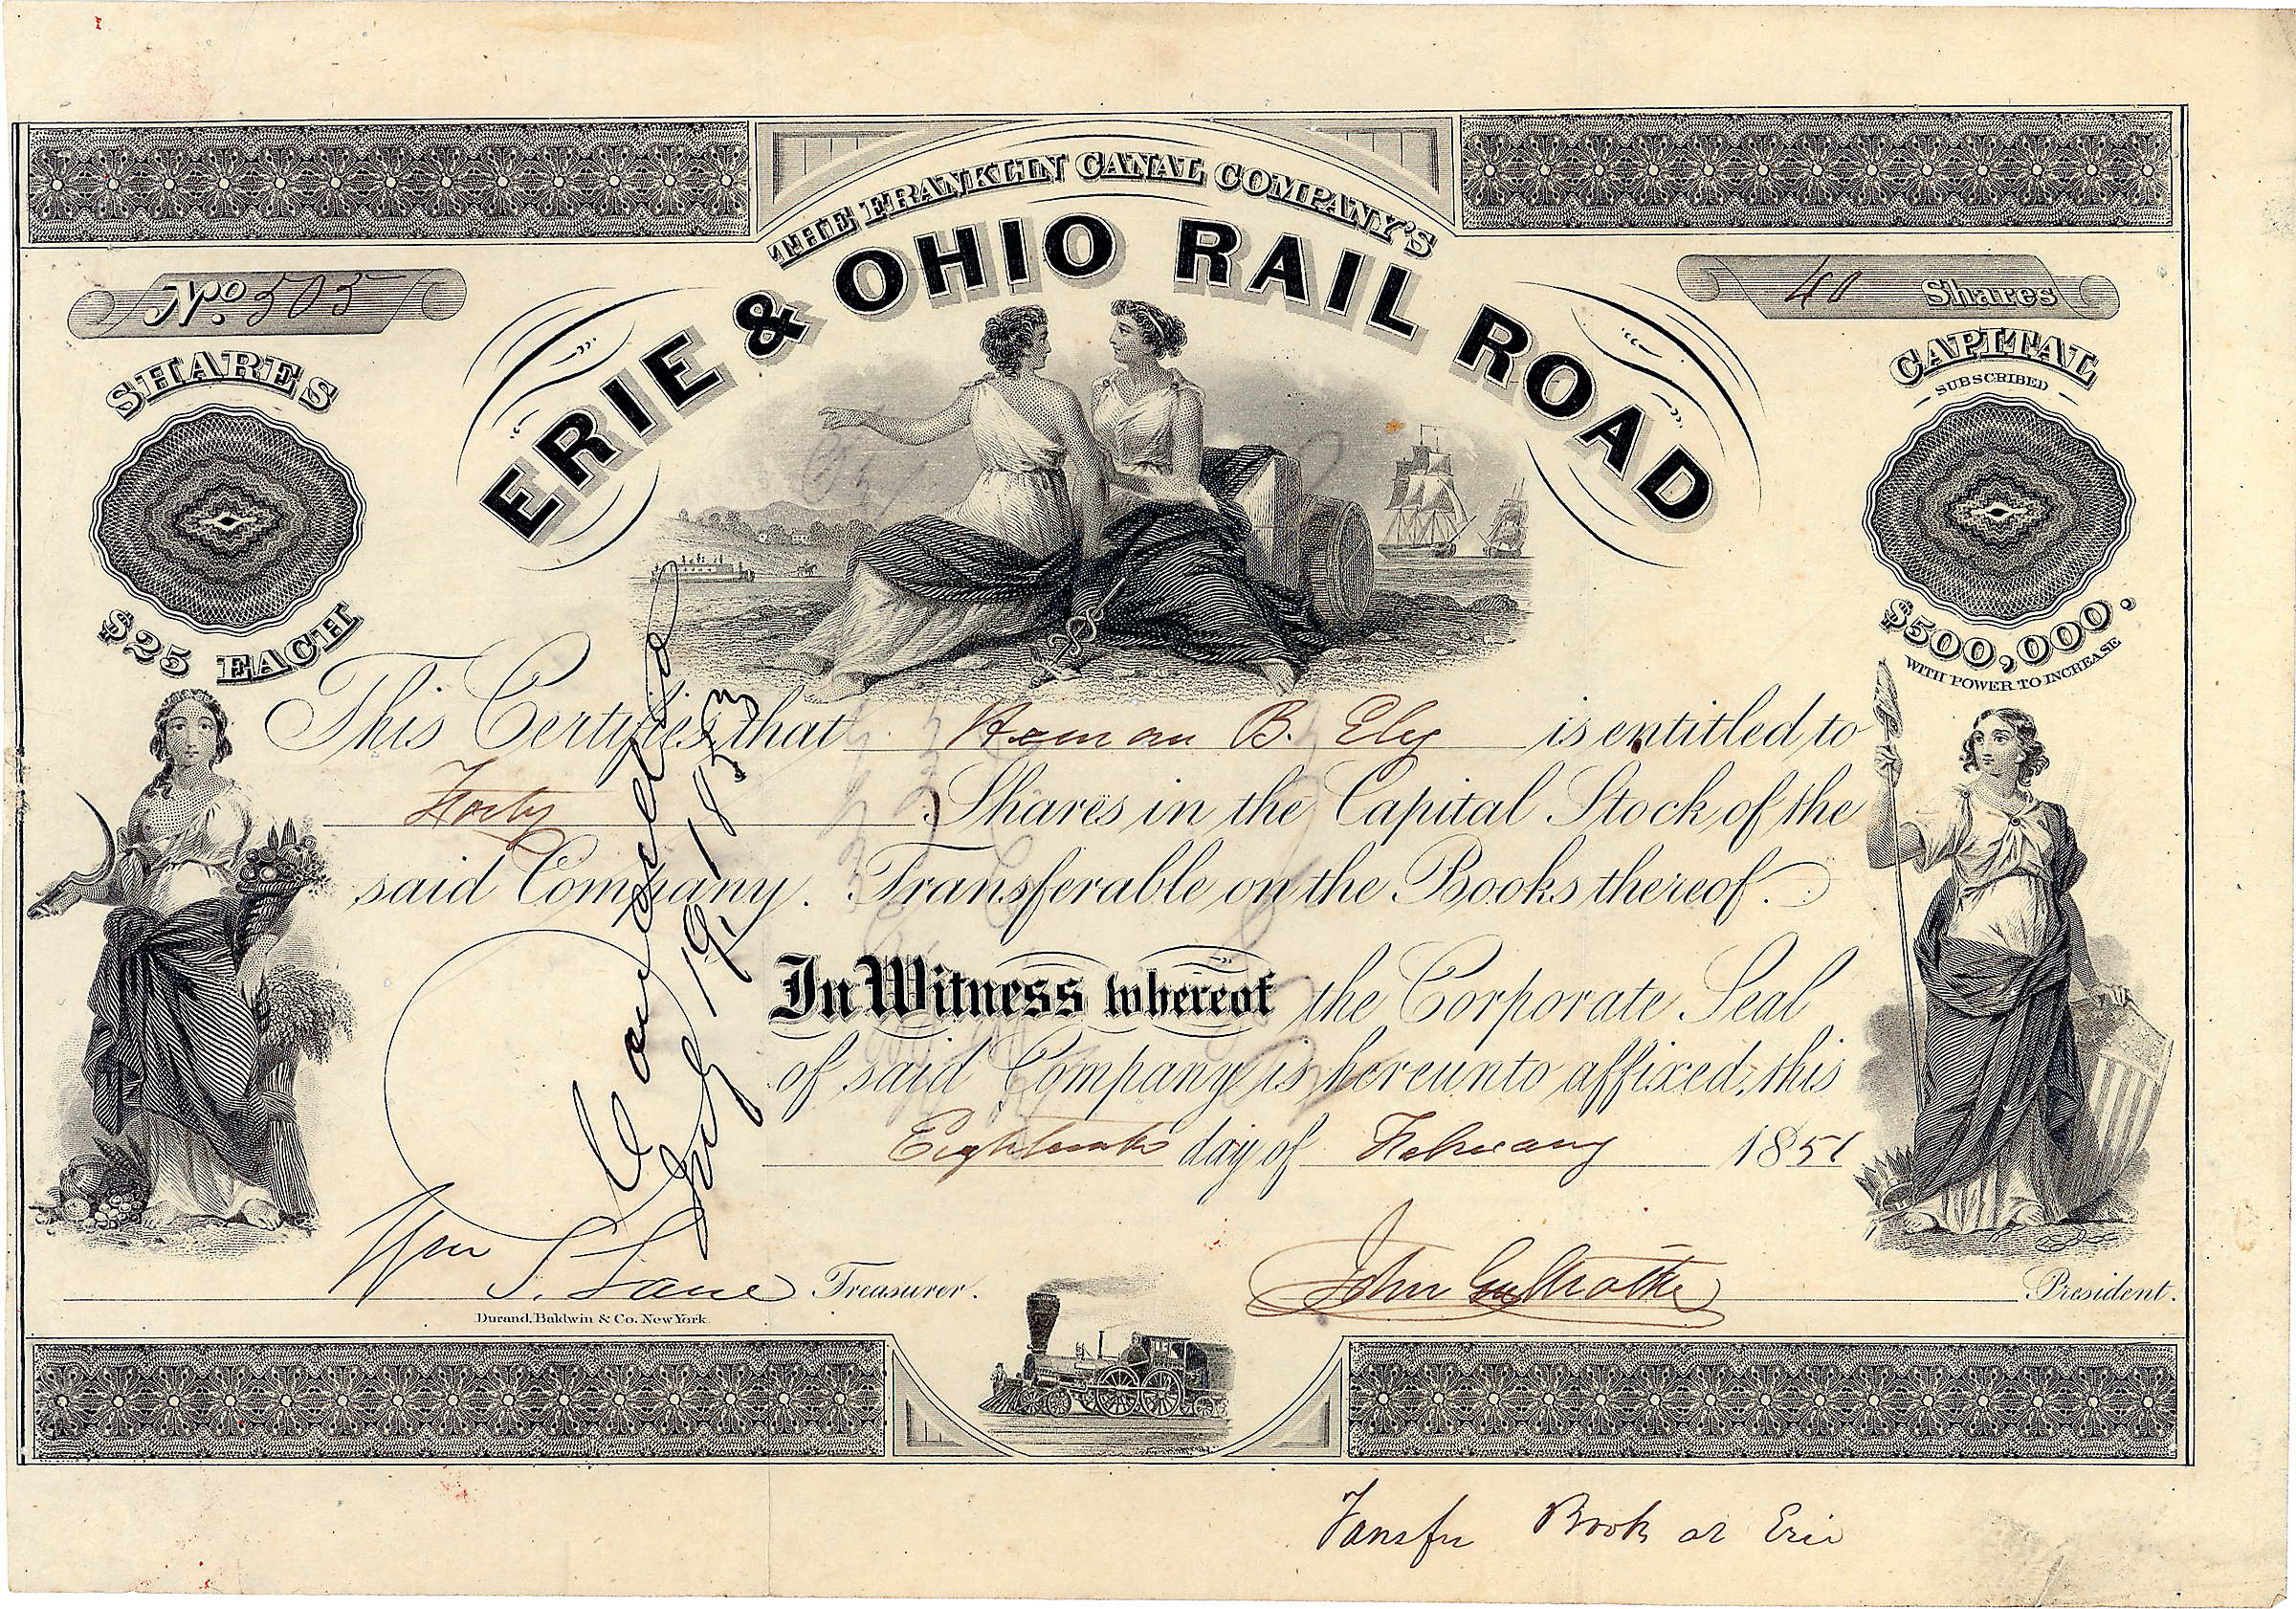 THE FRANKLIN CANAL COMPANY'S
ERIE & OHIO RAIL ROAD
No. 505
40 Shares
SHARES
$25 EACH
CAPITAL
SUBSCRIBED
$500,000.
WITH POWER TO INCREASE
This Certifies that Heman B. Ely is entitled to
Forty Shares in the Capital Stock of the
said Company. Transferable on the Books thereof.
In Witness whereof the Corporate Seal
of said Company is hereunto affixed, this
Eighteenth day of February 1851
Cancelled
July 19, 1853
Wm S. Lane Treasurer.
John Galbraith President.
Durand, Baldwin & Co. New York
Transfer Book at Erie